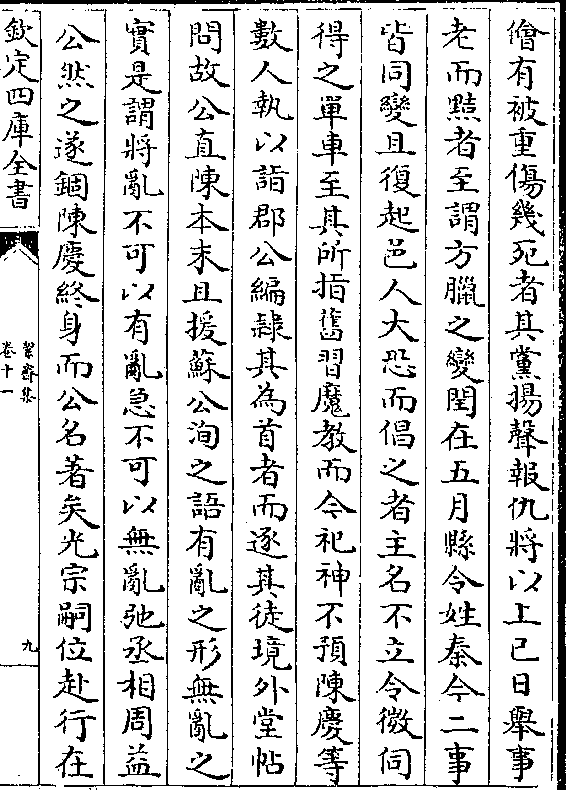 繪有被重傷幾死者其黨揚聲報仇將以上巳日舉事
老而黠者至謂方臘之變閏在五月縣令姓秦今二事
皆同變且復起邑人大恐而倡之者主名不立令微伺
得之單車至其所指舊習魔教而今祀神不預陳慶等
數人執以詣郡公編隸其為首者而逐其徒境外堂帖
問故公直陳本末且援蘇公洵之語有亂之形無亂之
實是謂將亂不可以有亂急不可以無亂弛丞相周益
公然之遂錮陳慶終身而公名著矣光宗嗣位赴行在
欽定四庫全書
絜齋集
卷十一
九